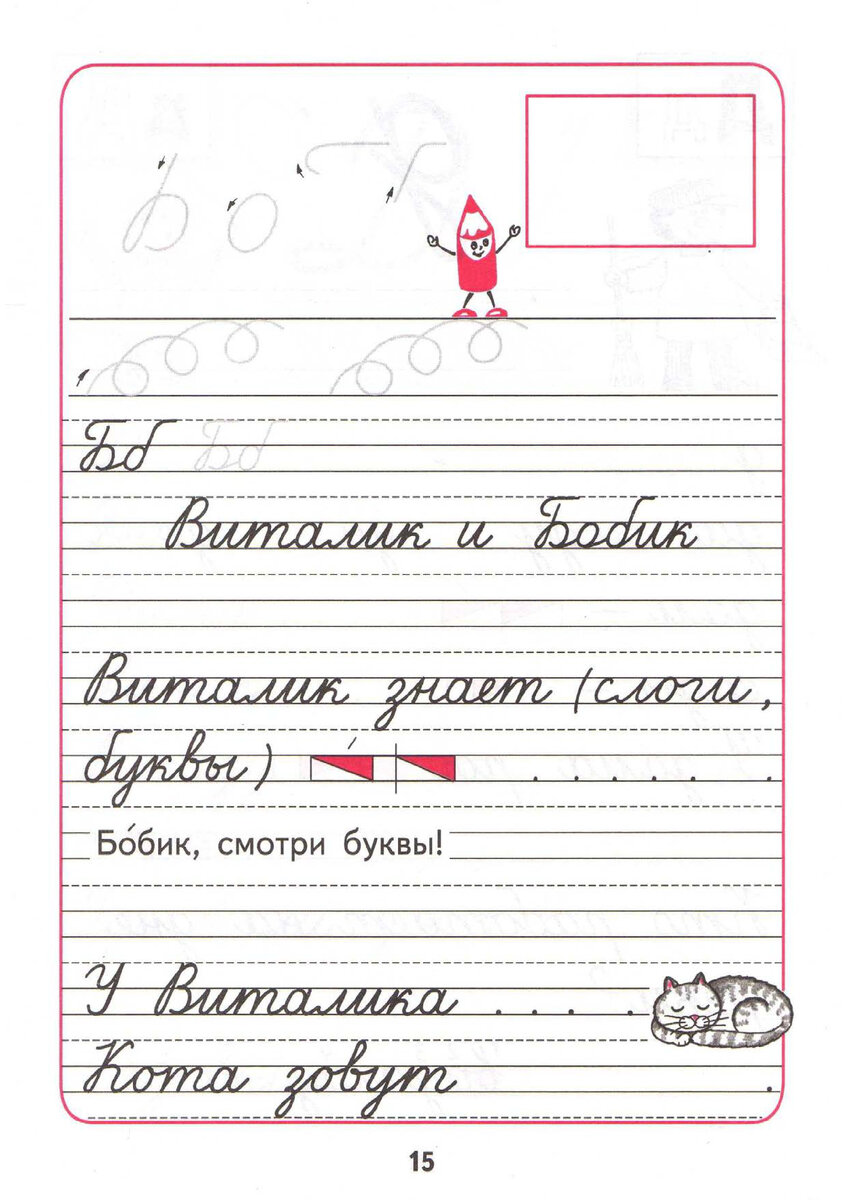 Бб Бб
Виталик и Бобик
Виталик знает (слоги,
буквы) . . . . . .
Бо́бик, смотри буквы!
У Виталика . . . .
Кота зовут .
15